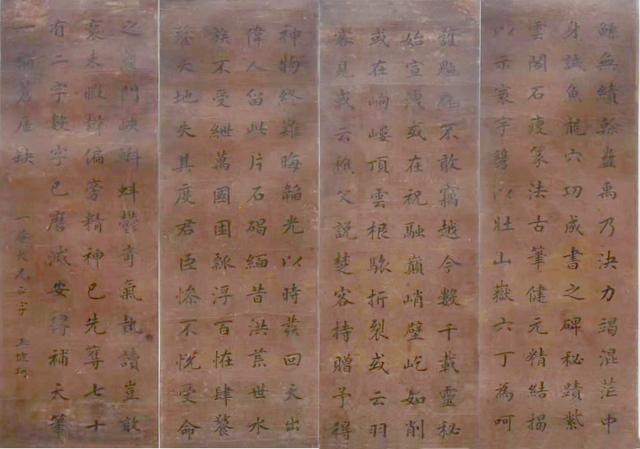 鯀無績幹蠱禹乃決力竭混茫中
身試魚龍穴功成書之碑秘蹟紫
雲閣石瘦篆法古筆健元精結揭
以示寰宇以壯山嶽六丁為呵
護魑魅不敢竊越今數千載靈秘
始宣洩或在祝融巔峭壁屹如削
或在岣嶁頂雲根驗折裂或云羽
客見或云樵父說楚客持贈予得
神物終難晦韜光以時發回天出
偉人留此片石碣緬昔洪荒世水
族不受紲萬國困浮百怪肆饕
餮天地失其度君臣慘不悅受命
之夔門峽蝌蚪鬱奇氣執讀豈敢
褻未暇辨偏旁精神已先奪七十
有二字數字已磨滅安得補天筆
一補蒼崖缺
一庵大兄正字 王